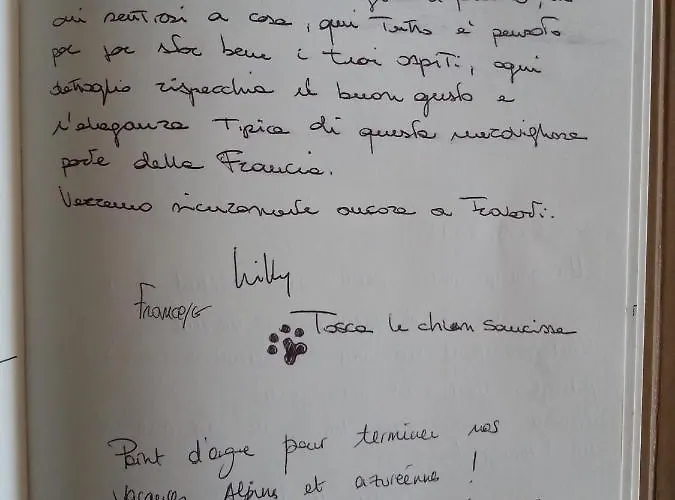 cui sentirsi a casa, qui Tutto è pensato
per far star bene i tuoi ospiti, ogni
dettaglio rispecchia il buon gusto e
l'eleganza Tipica di questa meravigliosa
parte della Francia.
Verremo sicuramente ancora a Trovarti.
Lilly
Francesco
Tosca le chien saucisse
Point d'orgue pour terminer nos
vacances Alpines et azuréennes !